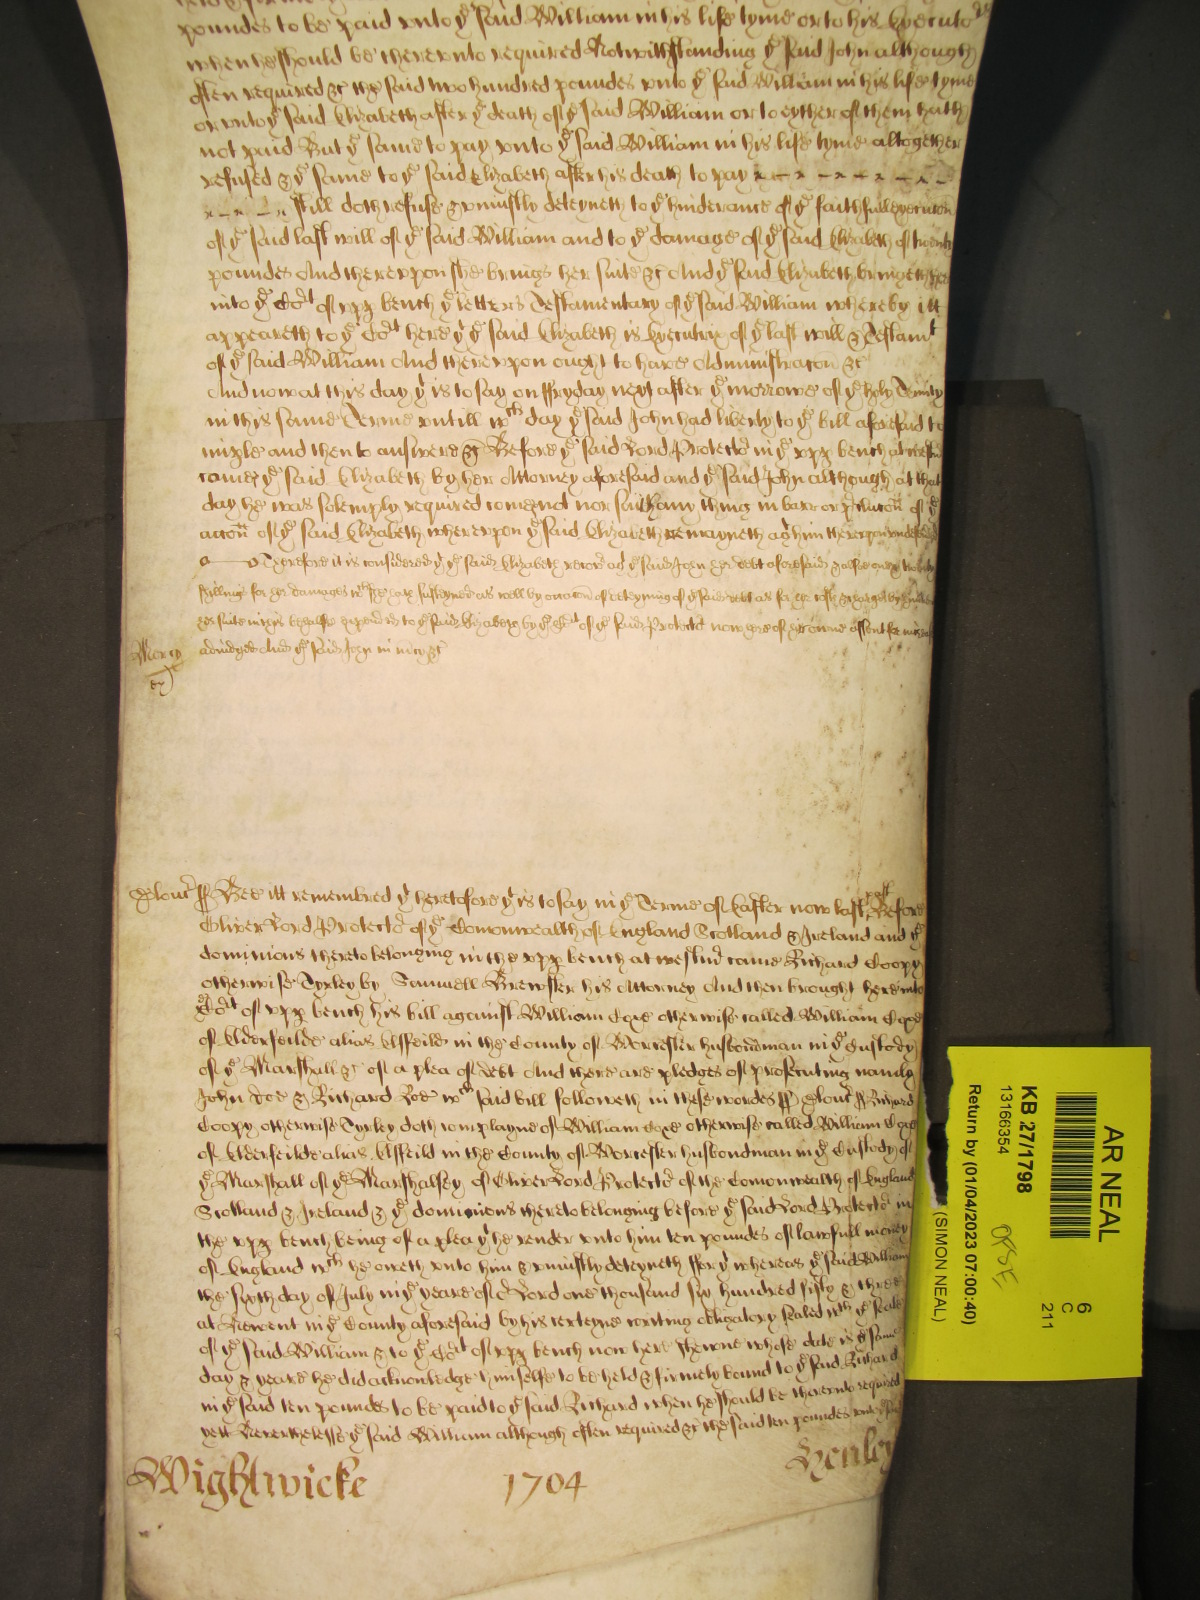 poundes to be paid unto ye said William in his life tyme or to his Executors
when he should be thereunto required Notwithstanding ye said John although
often required &c the said two hundred poundes unto ye said William in his life tyme
or unto ye said Elizabeth after ye death of ye said William or to eyther of them hath
not paid But ye same to pay unto ye said William in his life tyme altogether
refused & ye same to ye said Elizabeth after his death to pay
still doth refuse & uniustly deteyneth to ye hinderance of ye faithfull execucon
of ye said last will of ye said William and to ye damage of ye said Elizabeth of twenty
poundes And thereuppon she brings her suite &c And ye said Elizabeth bringeth here
into ye Cort of upp bench ye letters Testamentary of ye said William whereby itt
appeareth to ye Cort here yt ye said Elizabeth is Executrix of ye last will & Testamt
of ye said William And thereuppon ought to have Administracon &c
And now at this day yt is to say on ffryday next after ye morrowe of ye holy Trinity
in this same Terme untill wch day ye said John had liberty to ye bill aforesaid to
imple and then to answere &c Before ye said Lord Protector in ye upp bench at Westm
cometh ye said Elizabeth by her Attorney aforesaid and ye said John although at that
day he was solemply required come not nor saith any thing in barr or preclucon of ye
accon of ye said Elizabeth whereuppon ye said Elizabeth remayneth agt him thereuppon undefended
Therefore it is considered yt ye said Elizabeth recover agt ye said John her debt aforesaid & alsoe
shillings for her damages wch she hath susteyned as well by occacon of deteyning of ye said debt as for her costs & charges by her
suite in this behalfe expended to ye said Elizabeth by ye Cort of ye said Lord Protector now here of her owne assent
adiudged And ye said John in mercy &c
Mercy
Glouc ss Bee itt remembred yt heretofore yt is to say in ye Terme of Easter now last past Before
Oliver Lord Protector of ye Comonwealth of England Scotland & Ireland and ye
dominions thereto belonging in the upp bench at Westmr came Richard Coopy
otherwise Tyrley by Samuell Brewster his Attorney And then brought here into
ye Cort of upp bench his bill against William Coxe otherwise called William Coxe
of Elderfeilde alias Elsfeild in the County of Worcester husbondman in ye Custody
of ye Marshall &c of a plea of debt And there are pledges of prosecuting namely
John Doe & Richard Roe wch said bill followeth in these wordes ss Glouc ss Richard
Coopy otherwise Tyrley doth complayne of William Coxe otherwise called William Coxe
of Elderfeilde alias Elsfeild in the County of Worcester husbondman in ye Custody of
ye Marshall of ye Marshalsey of Oliver Lord Protector of the Comonwealth of England
Scotland & Ireland & ye dominions thereto belonging before ye said Lord Protector in
the upp bench being of a plea yt he render unto him ten poundes of lawfull money
of England wch he oweth unto him & uniustly deteyneth ffor yt whereas ye said William
the sixth day of July in ye yeare of or Lord one thousand six hundred fifty & three
at Newent in ye County aforesaid by his certeyne writing obligatory sealed with ye seale
of ye said William & to ye Cort of upp bench now here shewne whose date is ye same
day & yeare he did acknowledge himselfe to be held & firmely bound to ye said Richard
in ye said ten poundes to be paid to ye said Richard when he should be thereunto required
yett Neverthelesse ye said William although often required &c the said ten poundes unto ye said
Wightwicke 1704 Henley
AR NEAL
6
C
211
KB 27/1798
13166354
Return by (01/04/2023 07:00:40)
(SIMON NEAL)